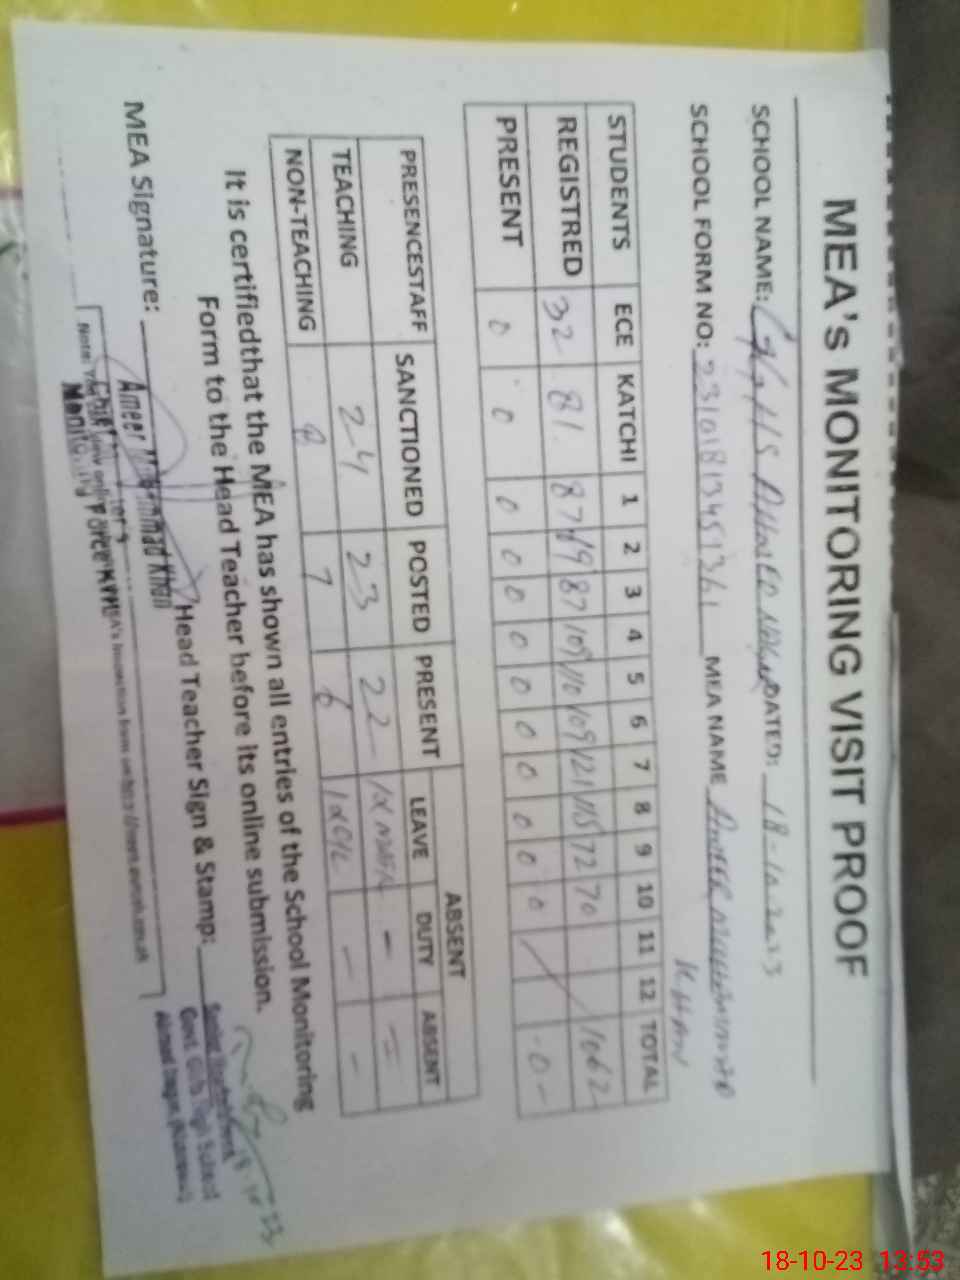 MEA's MONITORING VISIT PROOF
SCHOOL NAME: DATED: 18-10-2023
SCHOOL FORM NO: MEA NAME AMEER MUHAMMAD
KHAN
STUDENTS ECE KATCHI 1 2 3 4 5 6 7 8 9 10 11 12 TOTAL
REGISTRED 32 81 87 119 87 109 110 109 121 115 72 70 1062
PRESENT 0 0 0 0 0 0 0 0 0 0 0 0 -0-
ABSENT
PRESENCESTAFF SANCTIONED POSTED PRESENT LEAVE DUTY ABSENT
TEACHING 24 23 22 - -
NON-TEACHING 8 7 6 - -
It is certifiedthat the MEA has shown all entries of the School Monitoring
Form to the Head Teacher before its online submission.
MEA Signature: Head Teacher Sign & Stamp:
Ameer Muhammad Khan
Monitoring Force
Govt. Girls High School
18-10-23
18-10-23 13:53